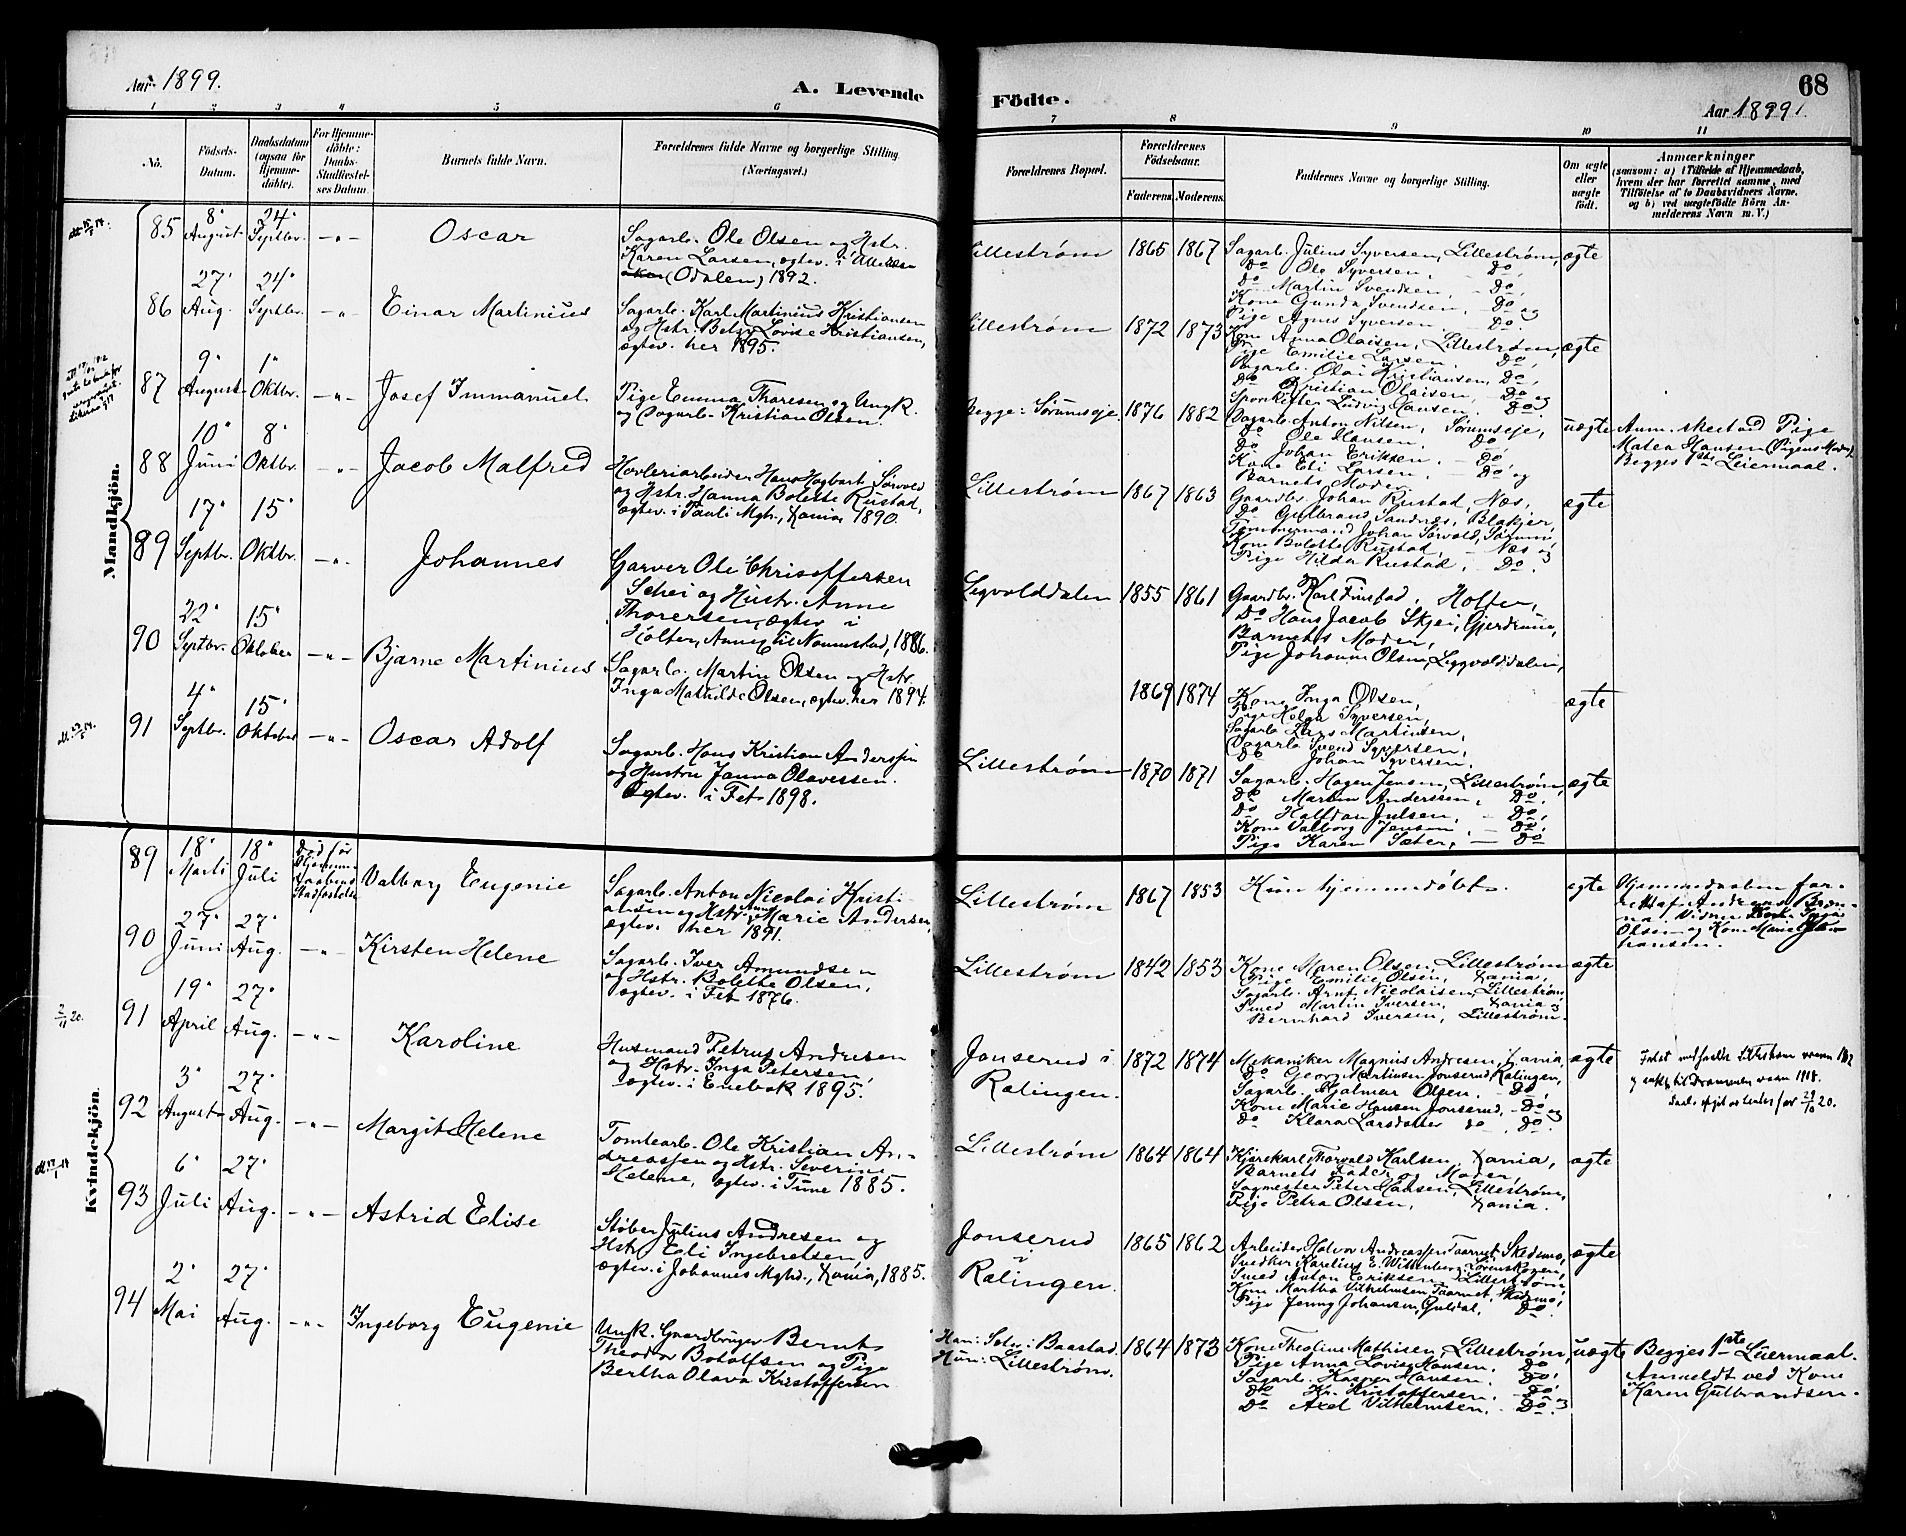 Aar 1899.
A. Levende
Födte.
68
Aar 1899.
1 2 3 4 5 6 7 8 9 10 11
No.
Födsels-
Datum.
Daabsdatum
(ogsaa for
Hjemme-
döbte).
For Hjemme-
döbte:
Daabs-
Stadfæstel-
ses Datum.
Barnets fulde Navn.
Forældrenes fulde Navne og borgerlige Stilling
(Næringsvei.)
Forældrenes Bopæl.
Forældrenes
Födselsaar.
Faderens Moderens
Faddernes Navne og borgerlige Stilling.
Om ægte
eller
uægte
födt.
Anmærkninger
(saasom: a) i Tilfælde af Hjemmedaab,
hvem der har forrettet samme, med
Tilföielse af to Daabsvidners Navne,
og b) ved uægtefödte Börn An-
melderens Navn m. V.)
Mandkjön.
85
8' August
24' Septbr.
Oscar
Sagarb. Ole Olsen og Hstr.
Karen Larsen, egtev. i
(Odalen) 1892.
Lillestrøm
1865 1867
Sagarb. Julius Syversen, Lillestrøm,
Do Ole Syversen, Do,
Do Martin Svendsen, Do,
Kone Gunda Svendsen, Do og
Pige Agnes Syversen, Do.
ægte
86
27' Aug.
24' Septbr.
Einar Martinius
Sagarb. Karl Martinius Kristiansen
og Hstr. Betzy Lovise Kristiansen,
egtev. her 1895.
Lillestrøm
1872 1873
Kone Anna Olaisen, Lillestrøm,
Pige Emilie Larsen, Do,
Sagarb. Olai Kristiansen, Do,
Do Kristian Olaisen, Do og
Sporskifter Ludvig Hansen, Do.
ægte
87
9' August
1' Oktbr.
Josef Immanuel
Pige Emma Thoresen og Ungk.
og Sagarb. Kristian Olsen.
Begge: Sørumseje.
1876 1882
Sagarb. Anton Nilsen, Sørumseje,
Do Ole Hansen, Do
Do Johan Eriksen, Do,
Kone Eli Larsen, Do og
Barnets Moder
uægte
Anm. skestad Pige
Matea Hansen (Pigens Moder)
Begges 1ste Leiermaal.
88
10' Juni
8' Oktbr.
Jacob Malfred
Høvleriarbeider Hans Hagbart Sørvold
og Hstr. Hanna Bolette Rustad,
egtev. i Pauli Mgh., Xania 1890.
Lillestrøm
1867 1863
Gaardbr. Johan Rustad, Næs,
Do Gulbrand Sandnes, Blakjer,
Tømmermand Johan Sørvold, Sørum,
Kone Bolette Rustad, Næs og
Pige Hilda Rustad, Do.
ægte
89
17' Septbr.
15' Oktbr.
Johannes
Garver Ole Christoffersen
Schei og Hustr. Anne
Thorersen, egtev. i
Holter, Annex til Nannestad, 1886.
Legvolddalen
1855 1861
Gaardbr. Karl Finstad, Holter,
Do Hans Jacob Skjei, Gjerdrum,
Barnets Moder,
Pige Johanne Olsen, Leggvolddalen,
90
22' Septbr.
15' Oktober
Bjarne Martinius
Sagarb. Martin Olsen og Hstr.
Inga Mathilde Olsen, egtev. her 1894.
1869 1874
Kone Inga Olsen,
Pige Helga Syversen,
Sagarb. Lars Martinsen,
Sagarb. Svend Syversen,
Do Johan Syversen.
ægte
91
4' Septbr.
15' Oktober
Oscar Adolf
Sagarb. Hans Kristian Anderssen
og Hustru Janna Olavessen.
Egtev. i Fet 1898.
Lillestrøm
1870 1871
Sagarb. Hagen Jensen, Lillestrøm,
Do Martin Andersen, Do.
Do Halfdan Julsen, Do,
Kone Valborg Jensen, Do,
Pige Karen Sæter, Do
ægte
Kvindekjön.
89
18' Marti
18' Juli
Død før
Hjemme-
daabens
Stadfæstelse
Valborg Eugenie
Sagarb. Anton Nicolai Kristi-
ansen og Hstr. Anne Marie Andersen,
egtev. her 1891.
Lillestrøm
1867 1853
Kun hjemmedøbt.
egte
Hjemmedaaben for-
rettet af Andreas
Olsen og Kone Marie
hansen.
90
27' Juni
27' Aug.
Kirsten Helene
Sagarb. Iver Amundsen
og Hstr. Bolette Olsen,
egtev. i Fet 1876.
Lillestrøm
1842 1853
Kone Maren Olsen, Lillestrøm
Pige Emilie Olsen, Xania,
Sagarb. Arnt Nicolaisen, Lillestrøm
Smed Martin Iversen, Xania og
Bernhard Iversen, Lillestrøm.
ægte
91
19' April
27' Aug.
Karoline
Husmand Petrus Andresen
og Hstr. Inga Petersen,
egtev. i Enebak 1895.
Jonserud i
Rælingen.
1872 1874
Mekaniker Magnus Andresen, Xania,
Do Georg Martinsen, Jonserud, Rælingen,
Sagarb. Hjalmar Olsen, Do,
Kone Marie Hansen Jonserud, Do og
Do Klara Larsdatter do, Do.
ægte
92
3' August
27' Aug.
Margit Helene
Tomtearb. Ole Kristian An-
dreassen og Hstr. Severine
Helene, egtev. i Tune 1885.
Lillestrøm
1864 1864
Kjørekarl Thorvald Karlsen, Xania,
Barnets Fader og Moder,
Sagmester Peter Hansen, Lillestrøm,
Pige Petra Olsen, Xania.
ægte
93
6' Juli
27' Aug.
Astrid Elise
Støber Julius Andresen og
Hstr. Eli Ingebretsen,
egtev. i Johannes Mghd., Xania, 1885.
Jonserud
i
Rælingen.
1865 1862
Arbeider Halvor Andreassen Taarnet, Skedsmo,
Snedker Karelius E. Wittenberg, Lørenskogen,
Smed Anton Eriksen, Lillestrøm,
Kone Martha Vilhelmsen Taarnet, Skedsmo,
Pige Jenny Johansen, Guldal, Do.
ægte
94
2' Mai
27' Aug.
Ingeborg Eugenie
Ungk. Gaardbruger Bernt
Theodor Botolfsen og Pige
Bertha Olava Kristoffersen
Han: Baastad.
Hun: Lillestrøm.
1864 1873
Kone Theoline Mathisen, Lillestrøm,
Pige Anna Lovise Hansen, Do
Sagarb. Kasper Hansen, Do,
Do Kr. Kristoffersen, Do,
Do Axel Vilhelmsen, Do.
uægte
Begges 1ste Leiermaal.
Anmeldt ved Kone
Karen Gulbrandsen.